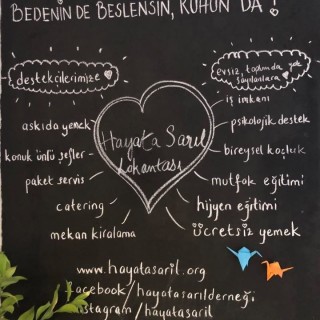 BEDENİN DE BESLENSİN, RUHUN DA !
destekçilerimize
evsiz, toplumda yok sayılanlara
iş imkanı
askıda yemek
psikolojik destek
Hayata Sarıl
lokantası
konuk ünlü şefler
bireysel koçluk
paket servis
mutfak eğitimi
catering
hijyen eğitimi
mekan kiralama
ücretsiz yemek
www.hayatasaril.org
facebook/hayatasarılderneği
instagram/hayatasaril